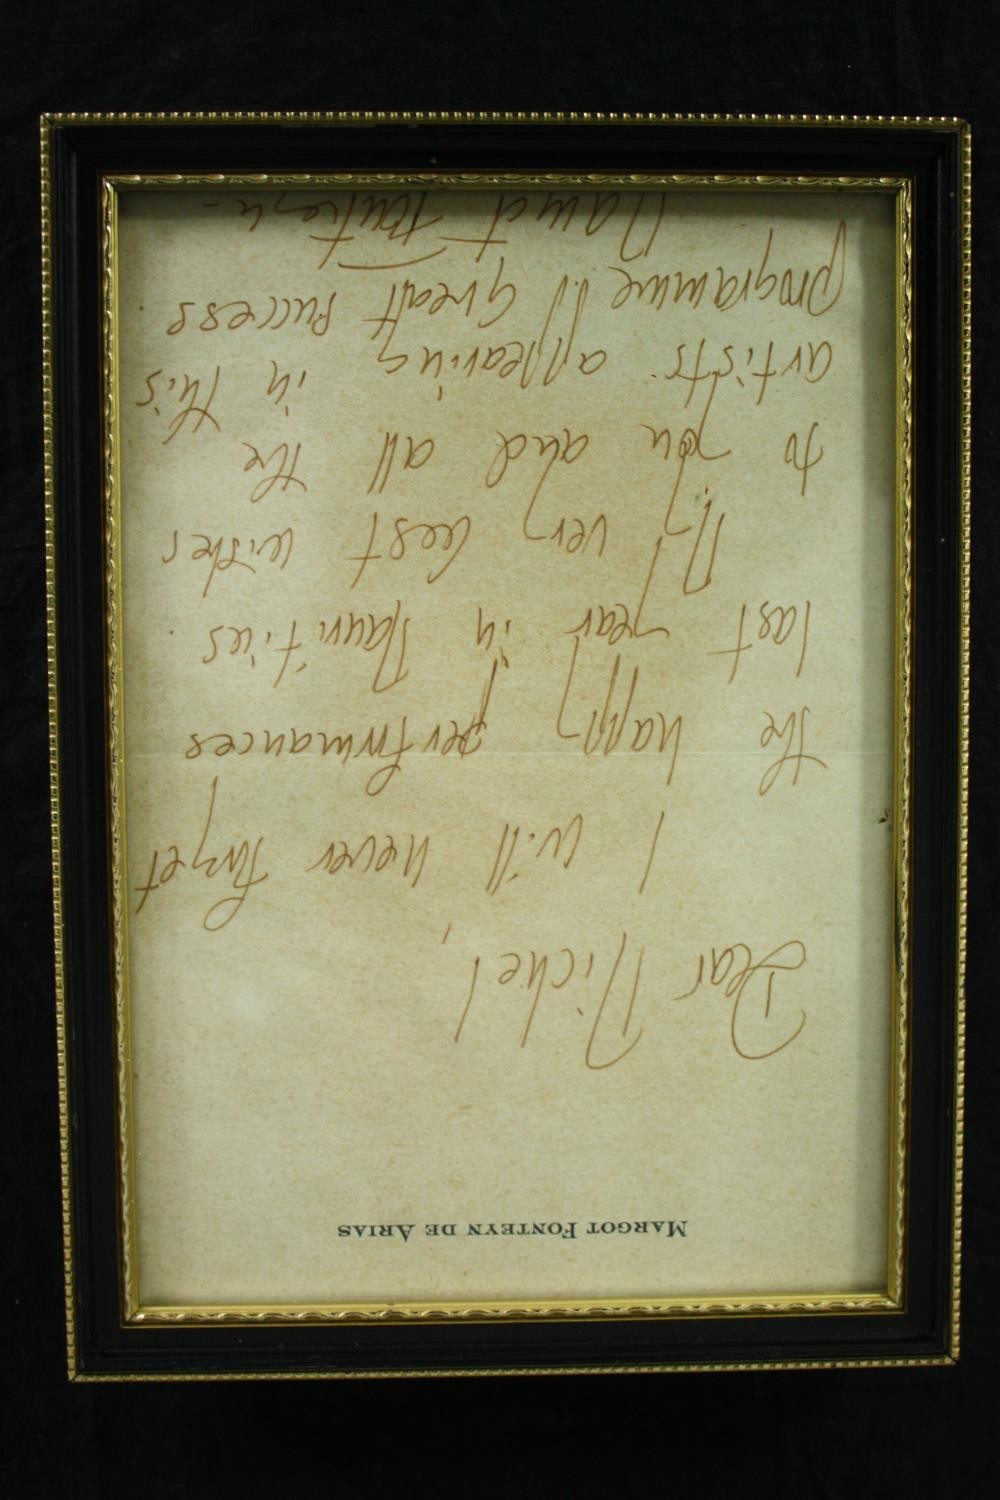 MARGOT FONTEYN DE ARIAS
Dear Michel,
I will never forget
the happy performances
last year in Mauritius.
My very best wishes
to you and all the
artists appearing in this
programme. Great success
Margot Fonteyn -